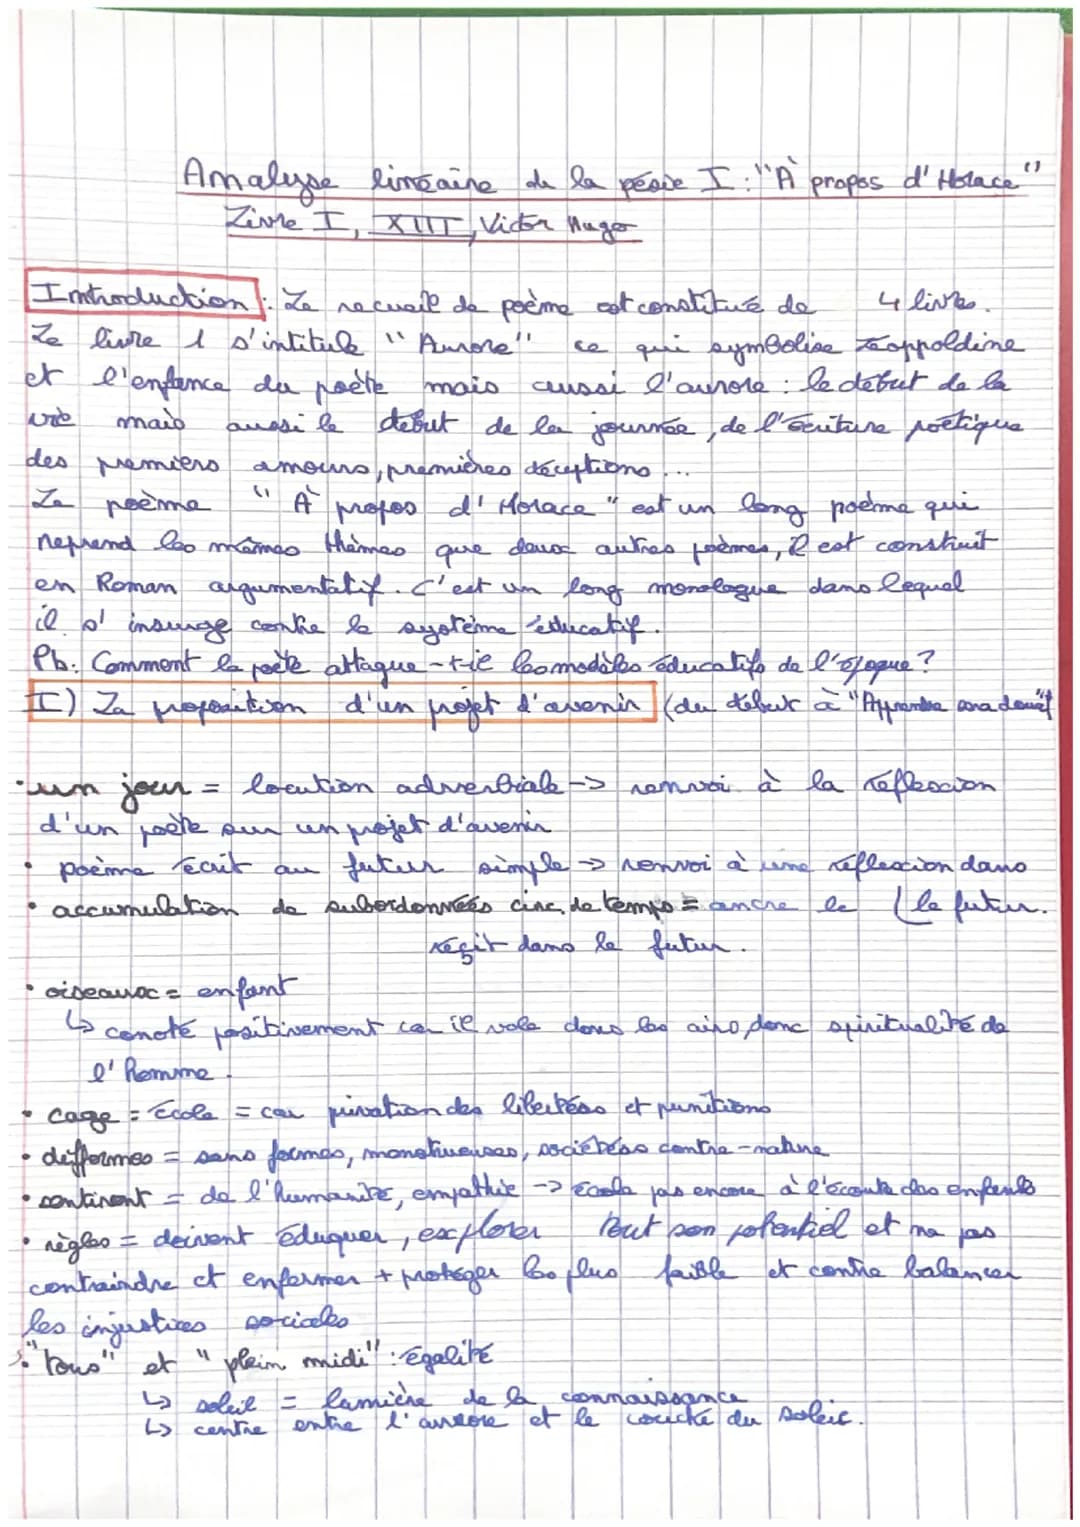 Analyse linéaire de la pésie I : "À propos d'Horace"
Livre I, XIII, Victor Hugo
Introduction : Le recueil de poème est constitué de 4 livres.
Le livre 1 s'intitule "Aurore" ce qui symbolise Léoppoldine
et l'enfance du poète mais aussi l'aurore : le début de la
vie mais aussi le début de la journée, de l'écriture poétique
des premiers amours, premières déceptions...
Le poème "À propos d'Horace" est un long poème qui
reprend les mêmes thèmes que deux autres poèmes, il est construit
en Roman argumentatif. C'est un long monologue dans lequel
il s'insurge contre le système éducatif.
Pb: Comment le poète attaque-t-il les modèles éducatifs de l'époque ?
I) La proposition d'un projet d'avenir (du début à "Apprendre sera doux")
• un jour = locution adverbiale -> renvoi à la réflexion
d'un poète sur un projet d'avenir
• poème écrit au futur simple -> renvoi à une réflexion dans
• accumulation de subordonnées circ. de temps = ancre le ( le futur.
réçit dans le futur.
• oiseaux = enfant
↳ conoté positivement car il vole dans les airs, donc spiritualité de
l'Homme.
• cage = école = car privation des libertés et punitions
• difformes = sans formes, monstrueuses, sociétés contre-nature
• sentiront = de l'humanité, empathie -> école pas encore à l'écoute des enfants
• règles = doivent éduquer, explorer tout son potentiel et ne pas
contraindre et enfermer + protéger les plus faible et contre balancer
les injustices sociales
• "tous" et "plein midi" : égalité
↳ soleil = lumière de la connaissance
↳ centre entre l'aurore et le couché du soleil.